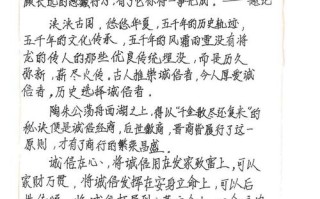 泱泱古国,悠悠华夏,五千年的历史轨迹,
五千年的文化传承,五千年的风霜雨雪没有将
龙的传人的那些优良传统湮没,而是历久
弥新,薪尽火传。古人推崇诚信者,今人厚爱诚
信者,历史选择诚信者。
陶朱公荡舟西湖之上,得以“千金散尽还复来”的
秘诀便是诚信经商,后世徽商,晋商皆履行了这一
原则,才有了商行的繁荣昌盛。
诚信在心,将诚信用在发家致富上,可以
家财万贯,将诚信发挥在安身立命上,可以后